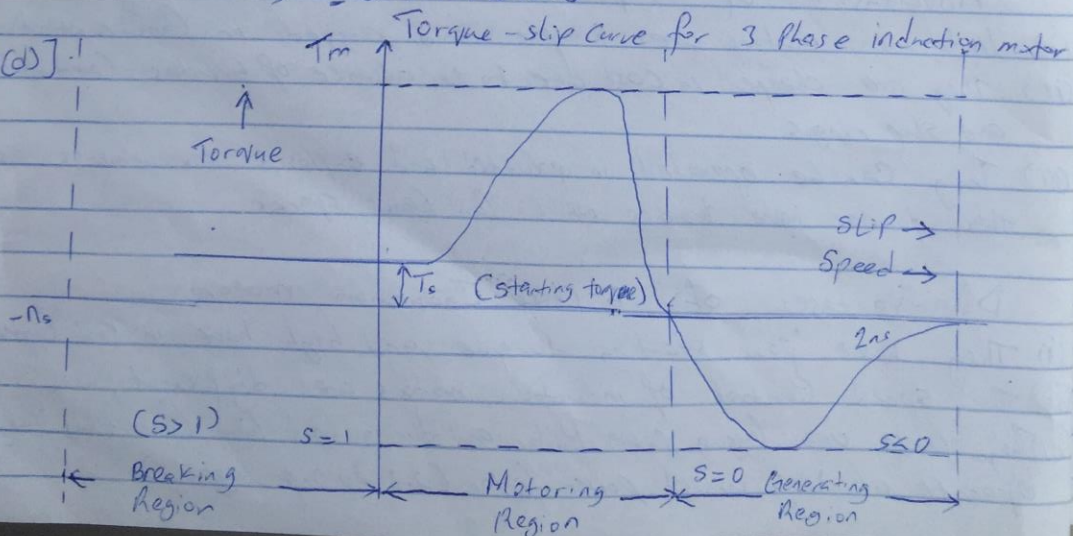 Torque-slip Curve for 3 Phase induction motor
(d)]
Tm
Torque
Slip →
Speed →
Ts (starting torque)
-ns
2ns
(S>1)
S=1
S<0
S=0
Breaking
Region
Motoring
Region
Generating
Region